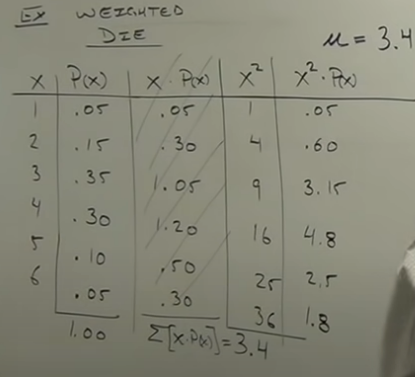 Ex WEIGHTED
DIE
μ = 3.4
x P(x) x · P(x) x² x² · P(x)
1 .05 .05 1 .05
2 .15 .30 4 .60
3 .35 1.05 9 3.15
4 .30 1.20 16 4.8
5 .10 .50 25 2.5
6 .05 .30 36 1.8
1.00 Σ[x·P(x)] = 3.4